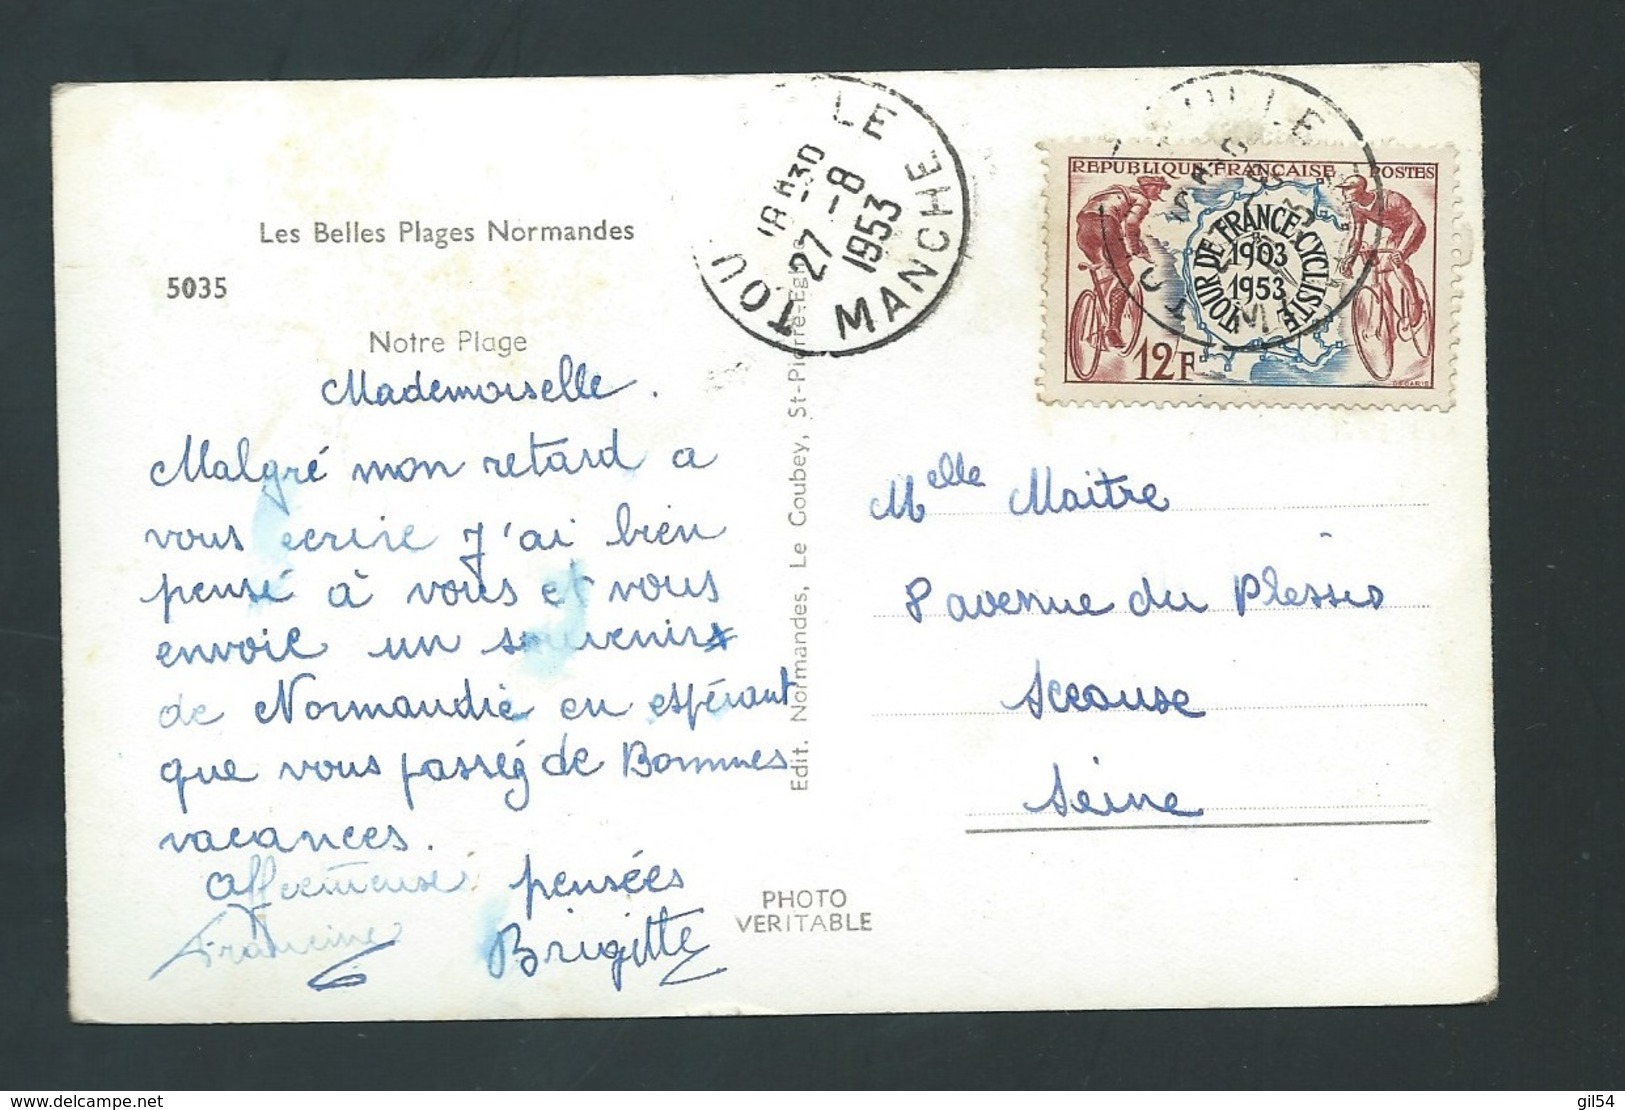 Les Belles Plages Normandes
5035
Notre Plage
Mademoiselle.
Malgré mon retard a
vous ecrire j'ai bien
pensé à vous et vous
envoie un souvenir
de Normandie en espérant
que vous passéz de Bonnes
vacances.
Affectueuses pensées
Francine Brigitte
Edit. Normandes, Le Goubey, St-Pierre-Eglise
PHOTO
VERITABLE
TOU LE
18 H 30
27 -8
1953
MANCHE
REPUBLIQUE FRANÇAISE POSTES
TOUR DE FRANCE CYCLISTE
1903
1953
12F
DECARIS
Melle Maitre
8 avenue du Plessis
Sceause
Seine
gil54